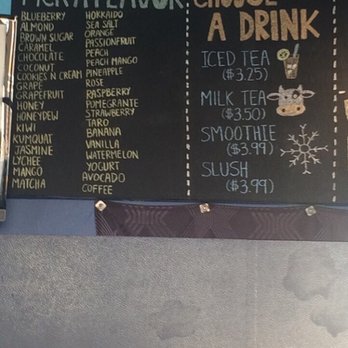 PICK A FLAVOR
BLUEBERRY
ALMOND
BROWN SUGAR
CARAMEL
CHOCOLATE
COCONUT
COOKIES N CREAM
GRAPE
GRAPEFRUIT
HONEY
HONEYDEW
KIWI
KUMQUAT
JASMINE
LYCHEE
MANGO
MATCHA
HOKKAIDO
SEA SALT
ORANGE
PASSIONFRUIT
PEACH
PEACH MANGO
PINEAPPLE
ROSE
RASPBERRY
POMEGRANTE
STRAWBERRY
TARO
BANANA
VANILLA
WATERMELON
YOGURT
AVOCADO
COFFEE
CHOOSE
A DRINK
ICED TEA
($3.25)
MILK TEA
($3.50)
SMOOTHIE
($3.99)
SLUSH
($3.99)